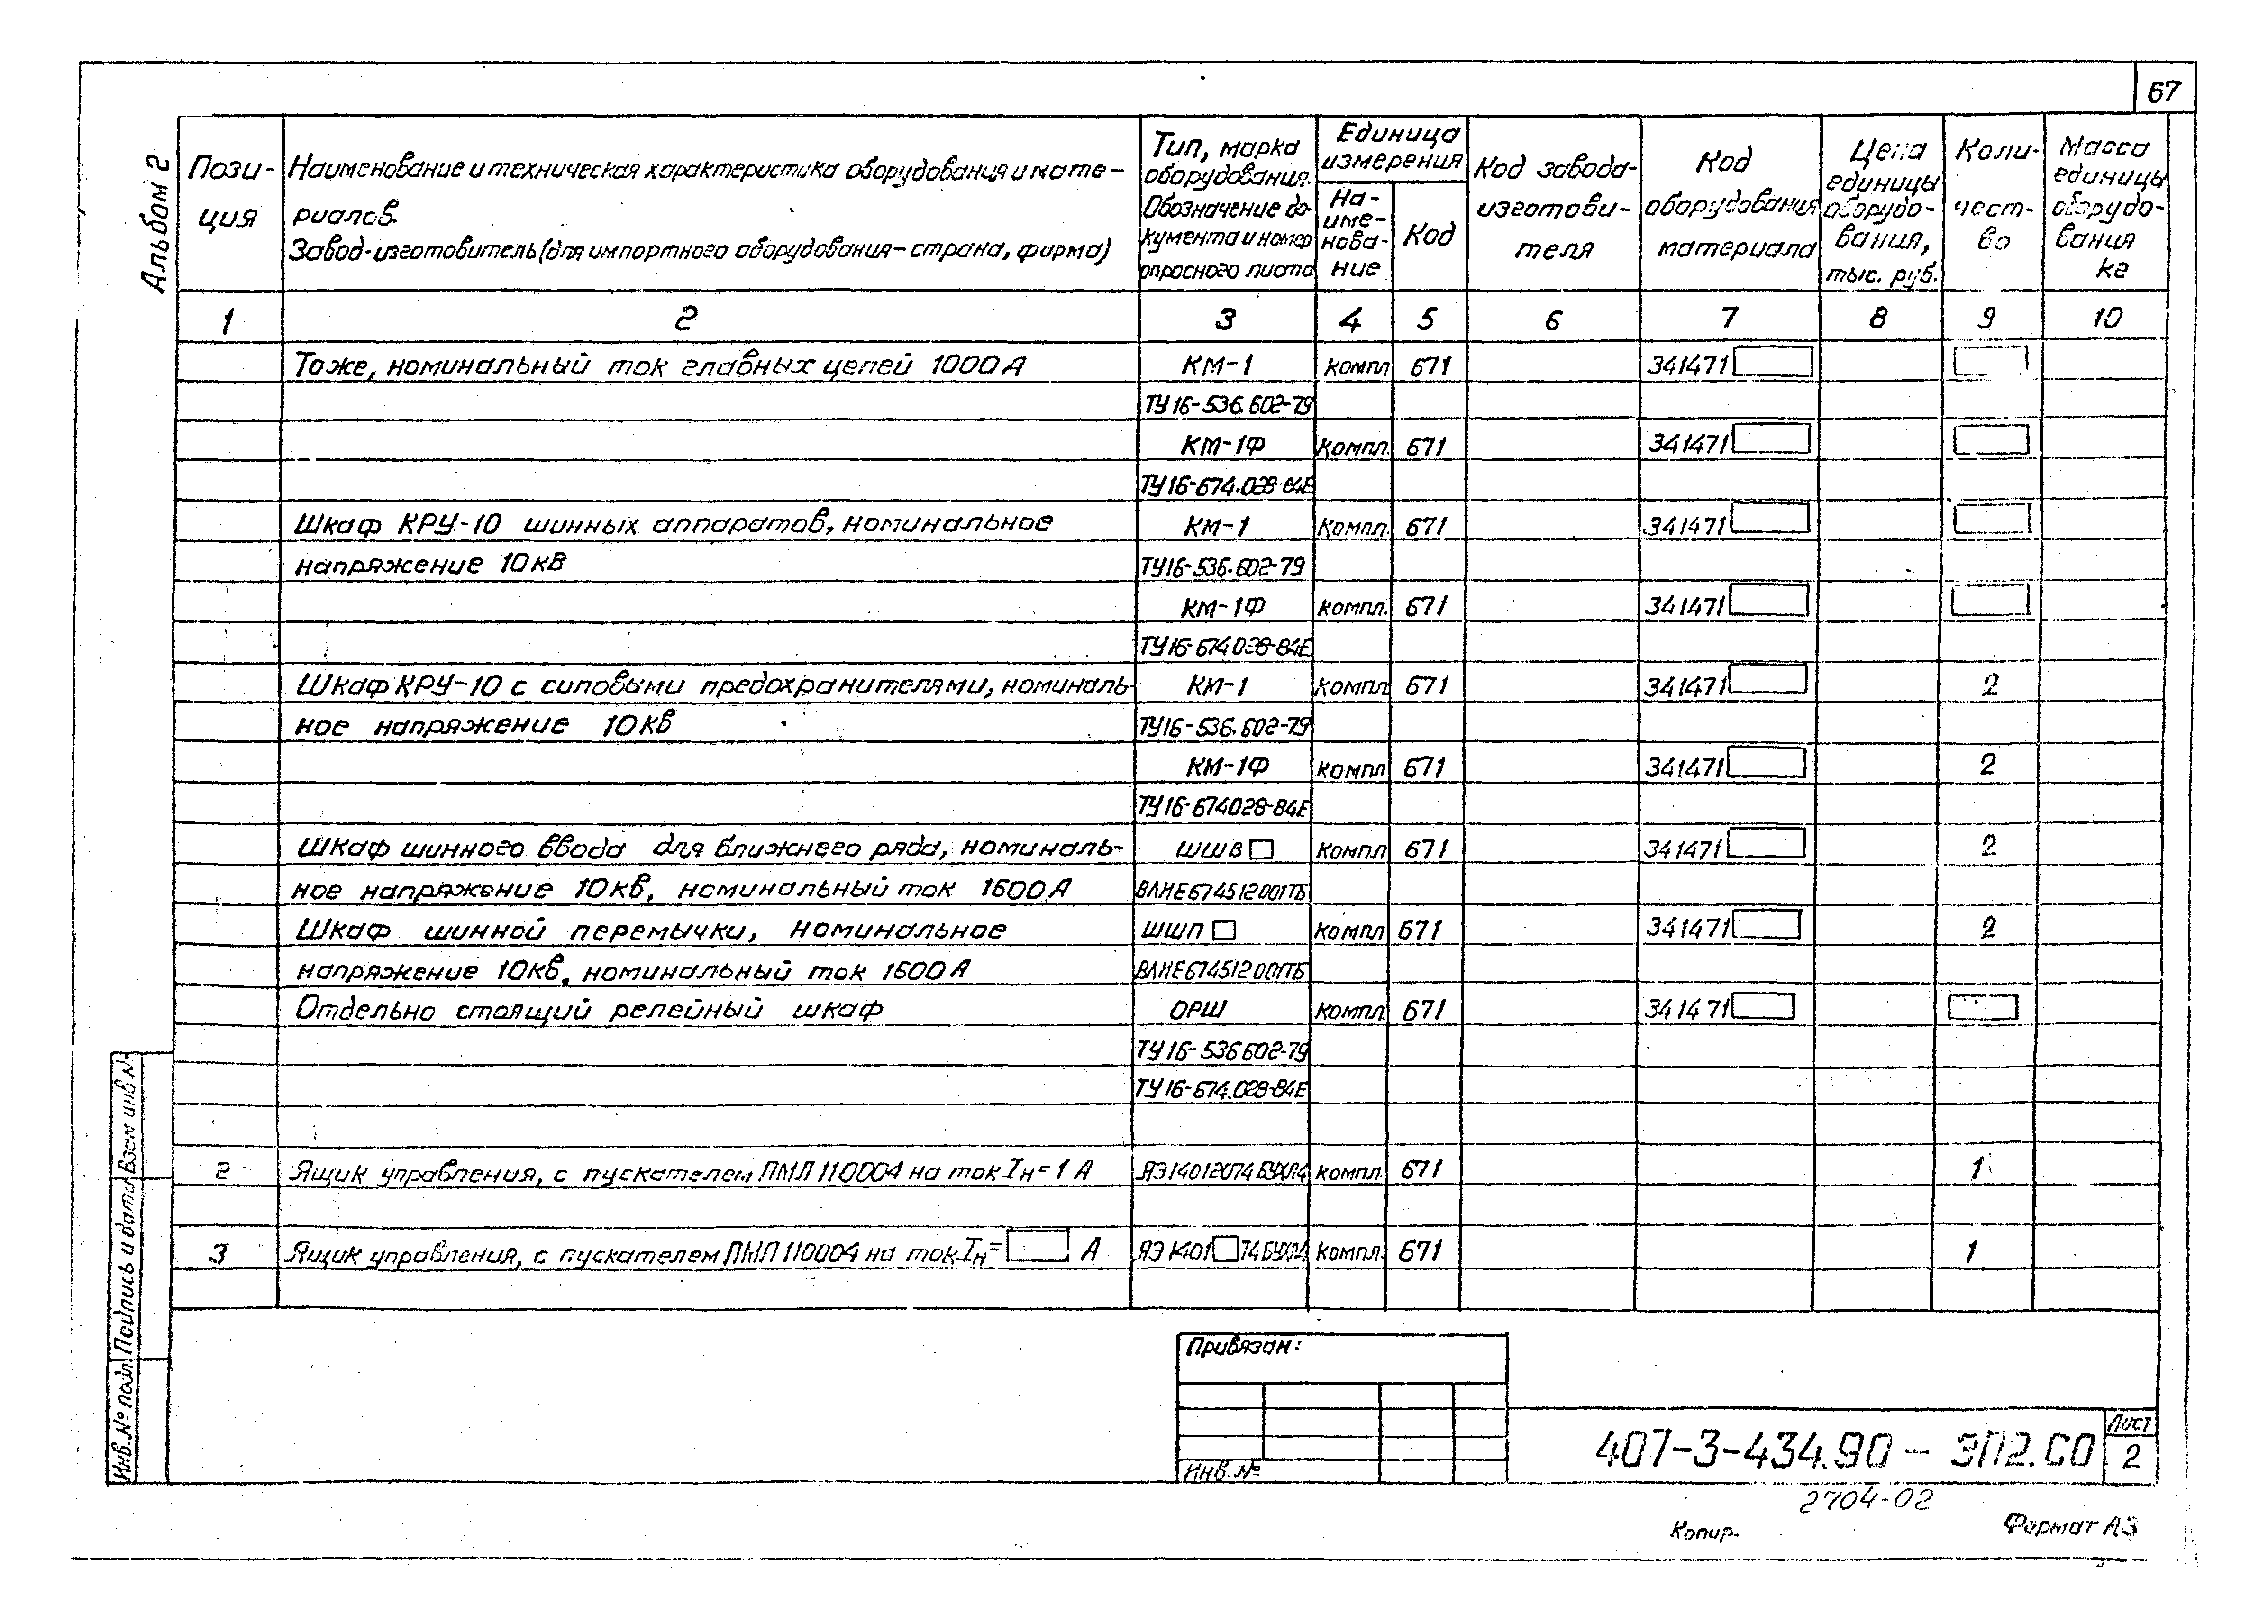 67
Альбом 2
Пози-
ция
Наименование и техническая характеристика оборудования и мате-
риалов.
Завод-изготовитель (для импортного оборудования - страна, фирма)
Тип, марка
оборудования.
Обозначение до-
кумента и номер
опросного листа
Единица
измерения
На-
име-
нова-
ние
Код
Код завода-
изготови-
теля
Код
оборудования
материала
Цена
единицы
оборудо-
вания,
тыс. руб.
Коли-
чест-
во
Масса
единицы
оборудо-
вания
кг
1 2 3 4 5 6 7 8 9 10
Тоже, номинальный ток главных цепей 1000 А КМ-1 компл 671 341471
ТУ16-536.602-79
КМ-1Ф компл. 671 341471
ТУ16-674.028-84Е
Шкаф КРУ-10 шинных аппаратов, номинальное КМ-1 компл. 671 341471
напряжение 10 кВ ТУ16-536.602-79
КМ-1Ф компл. 671 341471
ТУ16-674.028-84Е
Шкаф КРУ-10 с силовыми предохранителями, номиналь- КМ-1 компл 671 341471 2
ное напряжение 10 кВ ТУ16-536.602-79
КМ-1Ф компл 671 341471 2
ТУ16-674028-84Е
Шкаф шинного ввода для ближнего ряда, номиналь- ШШВ□ компл 671 341471 2
ное напряжение 10кв, номинальный ток 1600 А ВЛИЕ674512001ТБ
Шкаф шинной перемычки, номинальное ШШП □ компл 671 341471 2
напряжение 10кв, номинальный ток 1600 А ВЛИЕ674512001ТБ
Отдельно стоящий релейный шкаф ОРШ компл 671 341471
ТУ16-536602-79
ТУ16-674.028-84Е
2 Ящик управления, с пускателем ПМЛ110004 на ток Iн=1 А ЯЭ14012074БУХЛ4 компл. 671 1
3 Ящик управления, с пускателем ПМЛ110004 на ток Iн= А ЯЭ1401□74БУХЛ4 компл. 671 1
Инв. № подл. Подпись и дата Взам инв №
Привязан:
Инв. №
407-3-434.90 - ЭП2.СО
Лист
2
2704-02
Копир.
Формат А3